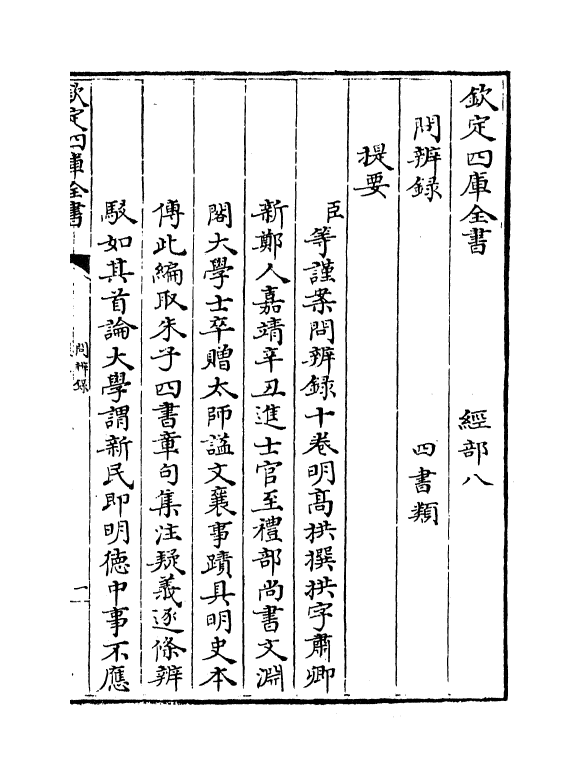 欽定四庫全書　經部八
問辨録　四書類
提要
臣等謹案問辨録十卷明髙拱撰拱字肅卿
新鄭人嘉靖辛丑進士官至禮部尚書文淵
閣大學士卒贈太師謚文襄事蹟具明史本
傳此編取朱子四書章句集注疑義逐條辨
駁如其首論大學謂新民即明德中事不應
欽定四庫全書
問辨録
一